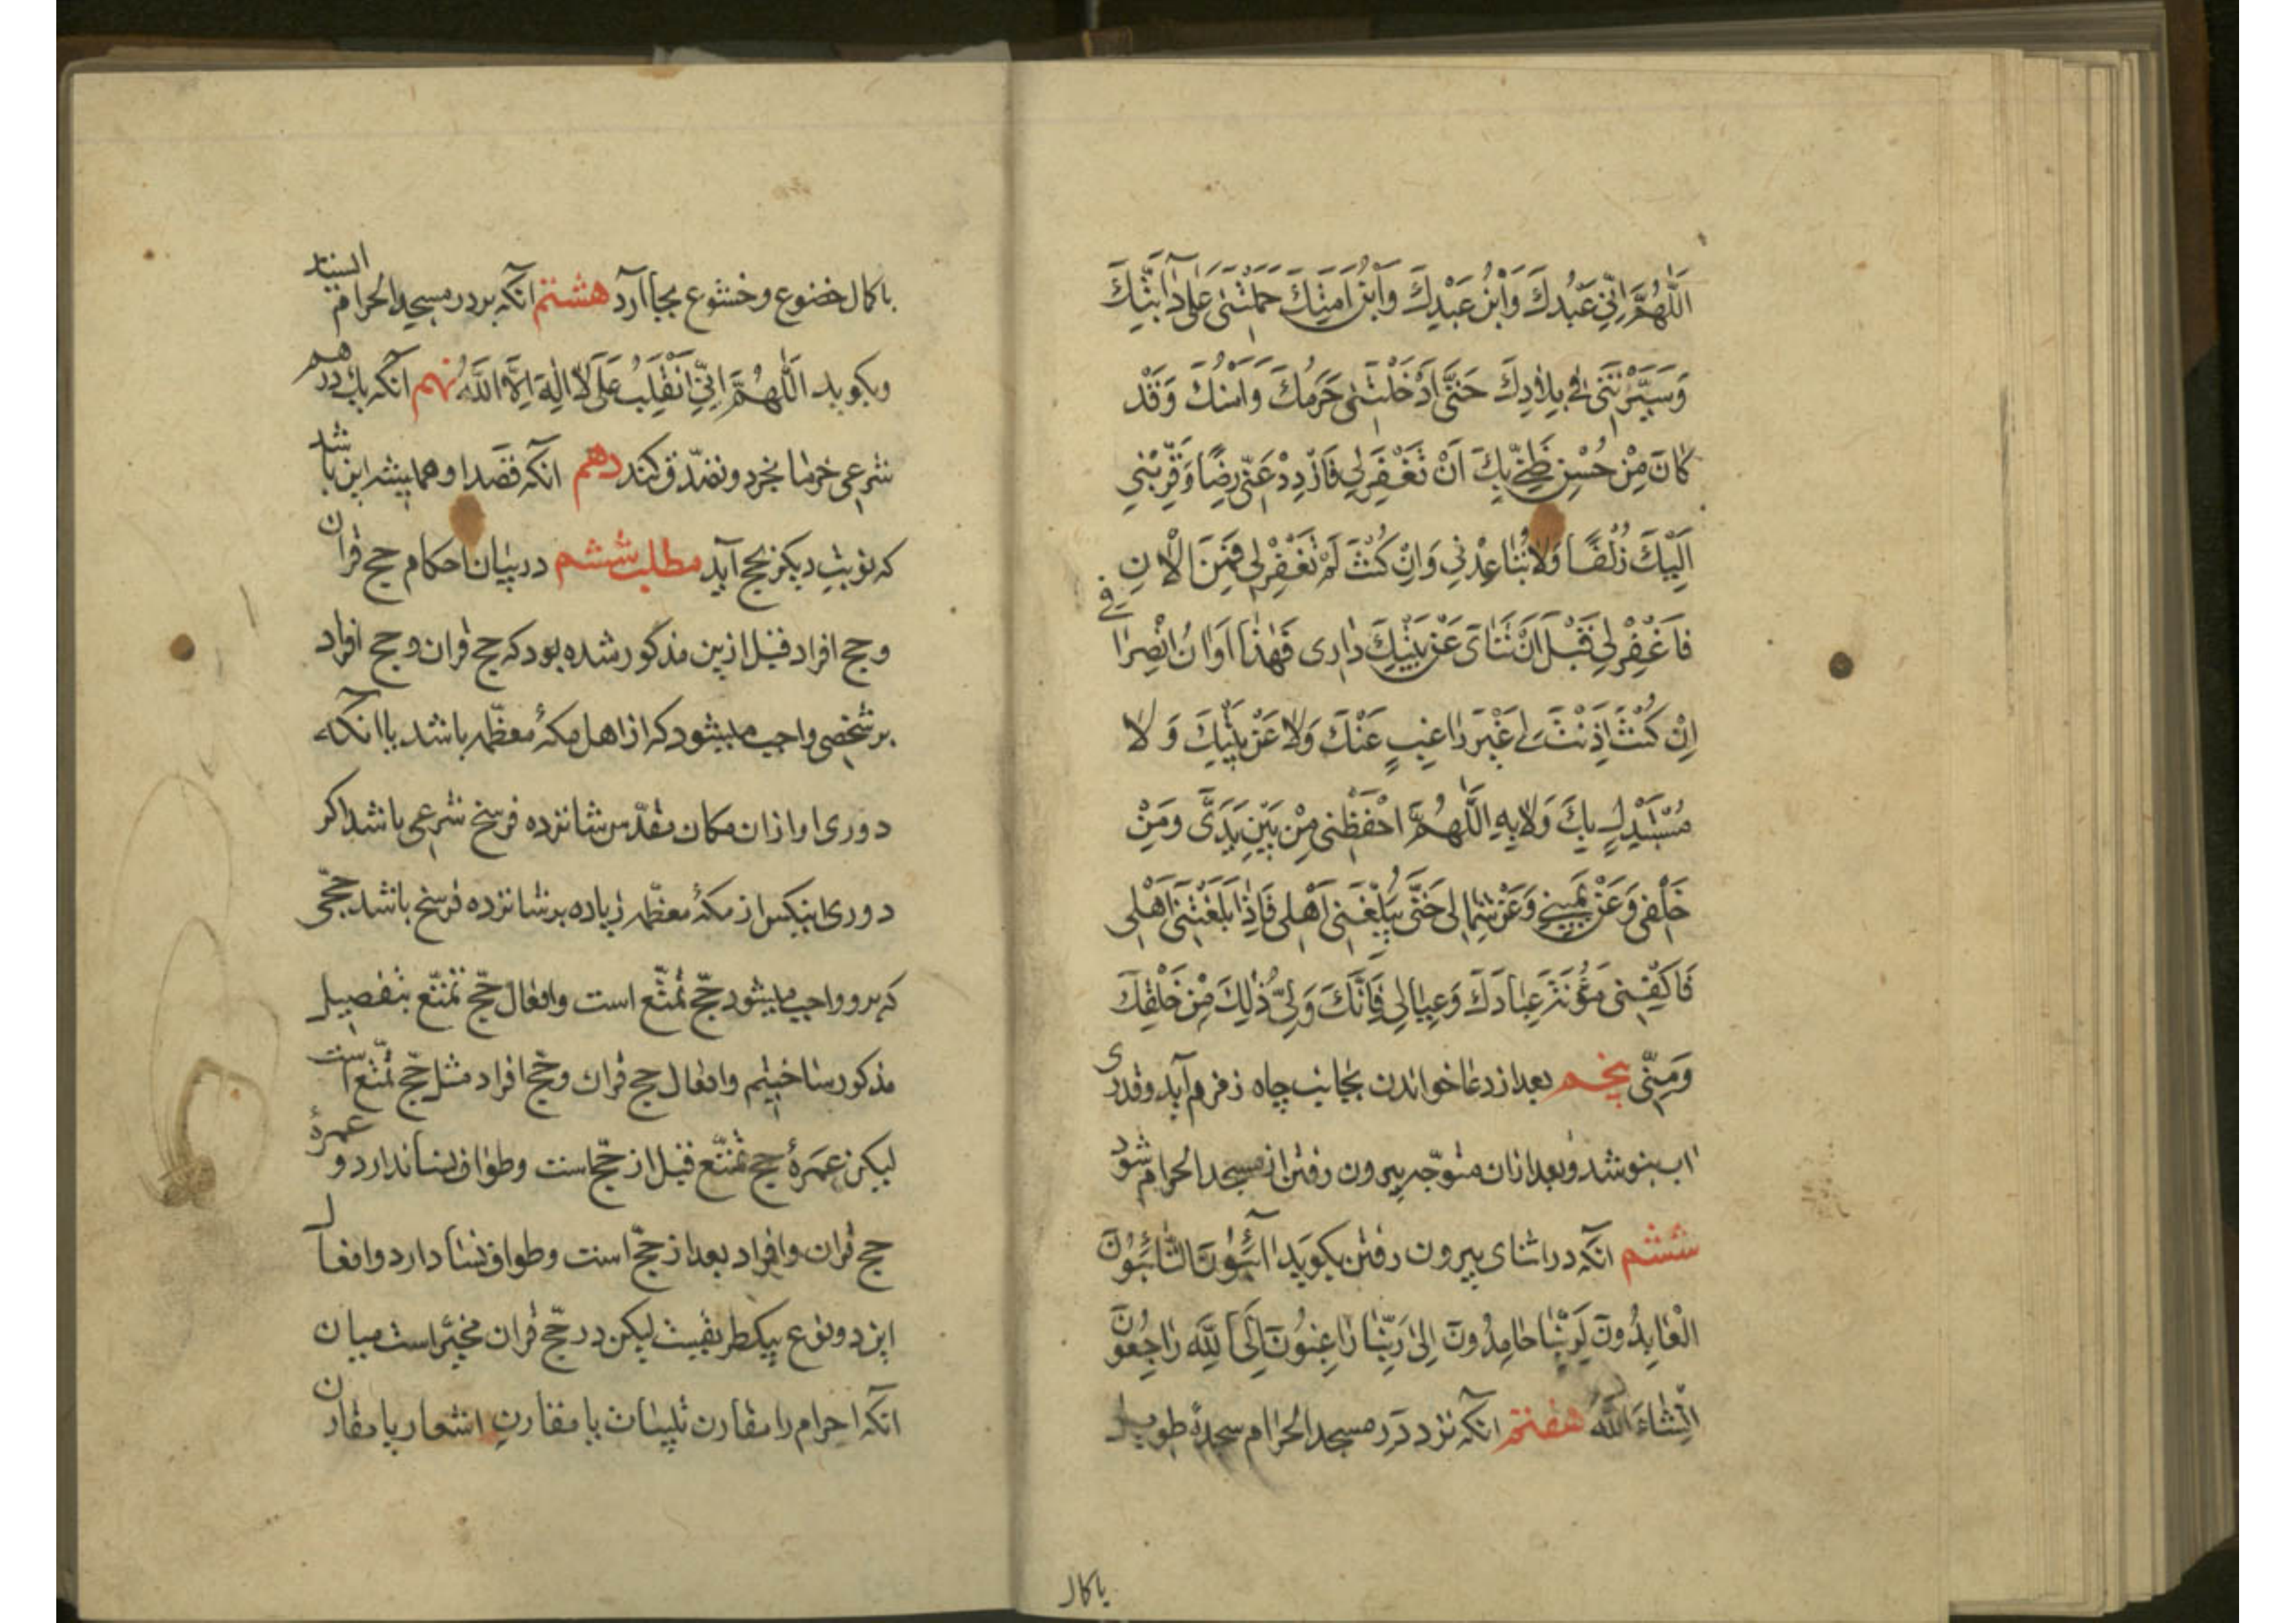 اَللّٰهُمَّ اِنّي عَبْدُكَ وَابْنُ عَبْدِكَ وَابْنُ اَمَتِكَ حَمَلْتَنى عَلى دٰآبَّتِكَ
وَسَيَّرْتَنى فى بِلاٰدِكَ حَتّٰى اَدْخَلْتَنى حَرَمَكَ وَاَمْنَكَ وَقَدْ
كٰانَ مِنْ حُسْنِ ظَنّي بِكَ اَنْ تَغْفِرَلي فَازْدِدْ عَنّى رِضًا وَقَرِّبْنى
اِلَيْكَ زُلْفًا وَلاٰ تُبٰاعِدْنى وَاِنْ كُنْتَ لَمْ تَغْفِرْلى فَمِنَ الْاٰنِ
فَاغْفِرْلى قَبْلَ اَنْ تَنْاٰى عَنْ بَيْتِكَ دٰارى فَهٰذٰا اَوٰانُ انْصِرٰافى
اِنْ كُنْتَ اَذِنْتَ لى غَيْرَ رٰاغِبٍ عَنْكَ وَلاٰ عَنْ بَيْتِكَ وَلاٰ
مُسْتَبْدِلٍ بِكَ وَلاٰ بِهِ اَللّٰهُمَّ احْفَظْنى مِنْ بَيْنِ يَدَىَّ وَمِنْ
خَلْفى وَعَنْ يَمينى وَعَنْ شِمٰالى حَتّٰى تُبَلِّغَنى اَهْلى فَاِذٰا بَلَغْتَنى اَهْلى
فَاكْفِنى مَؤُنَةَ عِبٰادِكَ وَعِيٰالى فَاِنَّكَ وَلِىُّ ذٰلِكَ مِنْ خَلْقِكَ
وَمِنّى پنجم بعد از دعا خواندن بجانب چاه زمزم آید و قدری
اب بنوشد و بعد ازان متوجّه بیرون رفتن از مسجد الحرام شود
ششم انکه در اثنای بیرون رفتن بکوید آئِبُونَ التّٰائِبُونَ
الْعٰابِدُونَ لِرَبِّنٰا حٰامِدُونَ اِلىٰ رَبِّنٰا رٰاغِبُونَ اِلَى اللّٰهِ رٰاجِعُونَ
اِنْشٰاءَ اللّٰه هفتم آنکه نزد در مسجد الحرام سجدهٔ طویل
باکمال
باکمال خضوع و خشوع بجا آرد هشتم آنکه بر در مسجد الحرام السیتد
وبکوید اَللّٰهُمَّ اِنّي اَنْقَلِبُ عَلىٰ لاٰ اِلٰهَ اِلاَّ اللّٰهُ نهم آنکه بیک درهم
شرعی خرما بخرد و تصدّق کند دهم انکه قصد او همیشه این باشد
که نوبت دیکر بحج آید مطلب ششم در بیان احکام حج قران
وحج افراد قبل ازین مذکور شده بود که حج قران وحج افراد
بر شخصی واجب میشود که از اهل مکهٔ معظّمه باشد یا آنکه
دوری او ازان مکان مقدّس شانزده فرسخ شرعی باشد اکر
دوری اینکس از مکهٔ معظّمه زیاده بر شانزده فرسخ باشد حجّی
که برو واجب میشود حجّ تمتّع است وافعال حجّ تمتّع بتفصیل
مذکور ساختیم وافعال حج قران وحجّ افراد مثل حجّ تمتّع است
لیکن عمرهٔ حج تمتّع قبل از حجّ است وطواف نسا ندارد و عمرهٔ
حج قران وافراد بعد از حجّ است وطواف نسا دارد وافعال
این دو نوع بیکطریقیست لیکن در حجّ قران مخیّر است میان
آنکه احرام را مقارن تلبیات یا مقارن اشعار یا مقارن